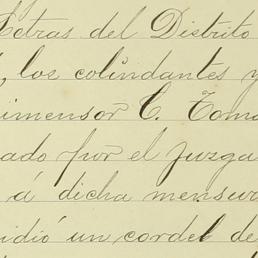 Letras del Distrito
, los colindantes y
imensor C. Toma
ado por el Juzga
á dicha mensur
idió un cordel de